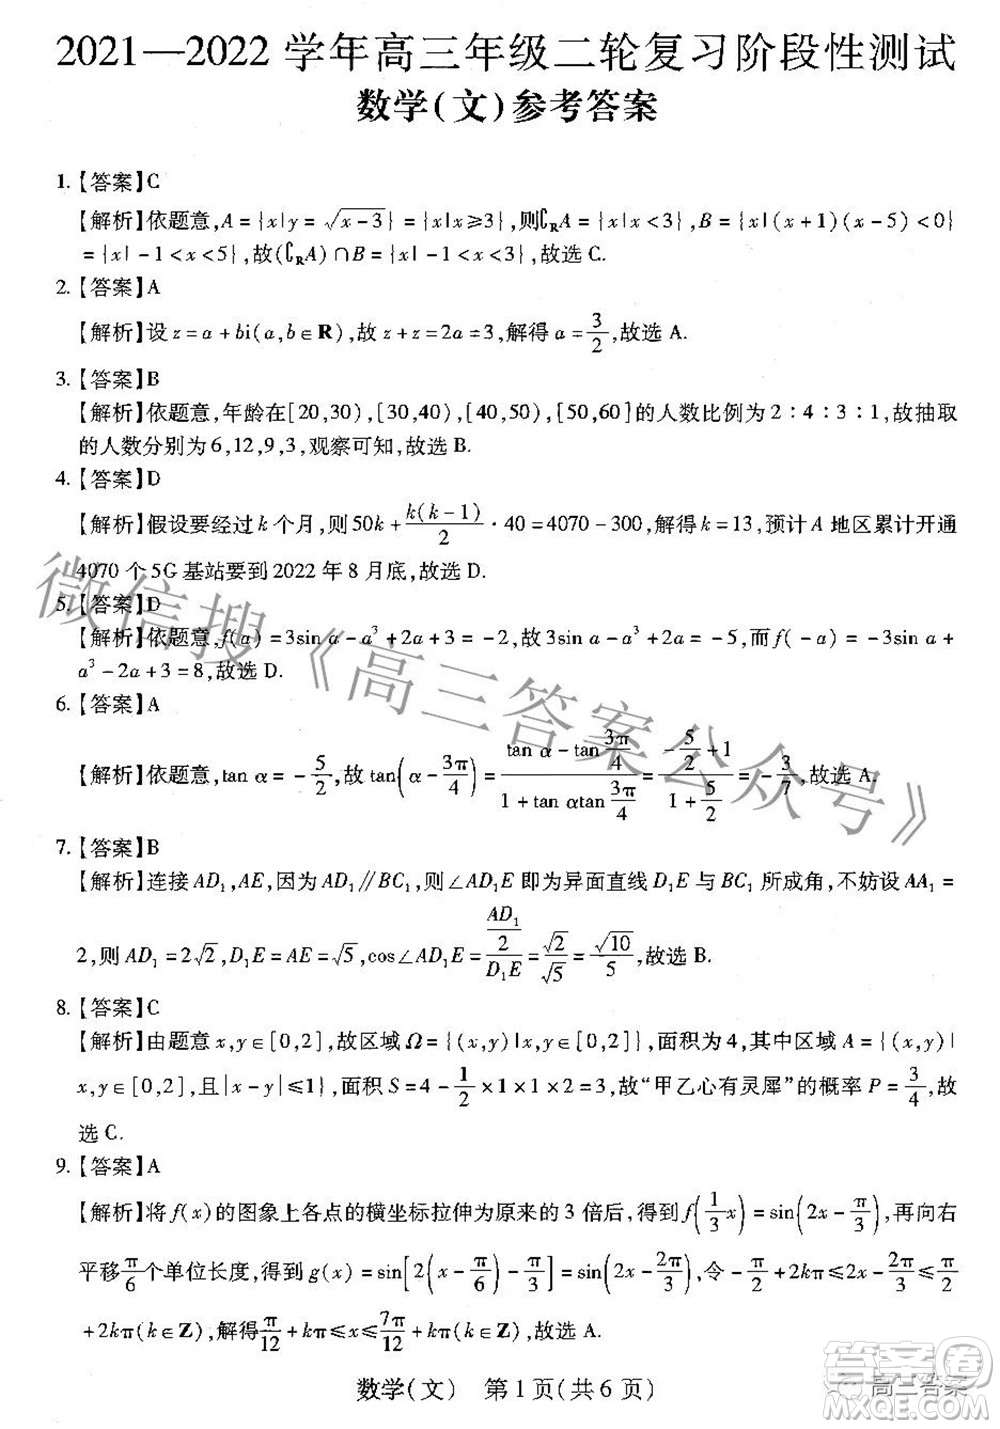 2021—2022 学年高三年级二轮复习阶段性测试
数学(文)参考答案
1.【答案】C
【解析】依题意,A={x|y=√(x-3)}={x|x≥3},则∁_R A={x|x<3},B={x|(x+1)(x-5)<0}
={x|-1<x<5},故(∁_R A)∩B={x|-1<x<3},故选 C.
2.【答案】A
【解析】设 z=a+bi(a,b∈R),故 z+z=2a=3,解得 a=3/2,故选 A.
3.【答案】B
【解析】依题意,年龄在[20,30),[30,40),[40,50),[50,60]的人数比例为 2:4:3:1,故抽取
的人数分别为 6,12,9,3,观察可知,故选 B.
4.【答案】D
【解析】假设要经过 k 个月,则 50k+k(k-1)/2·40=4070-300,解得 k=13,预计 A 地区累计开通
4070 个 5G 基站要到 2022 年 8 月底,故选 D.
5.【答案】D
【解析】依题意,f(a)=3sin a-a³+2a+3=-2,故 3sin a-a³+2a=-5,而 f(-a)=-3sin a+
a³-2a+3=8,故选 D.
6.【答案】A
【解析】依题意,tan α=-5/2,故 tan(α-3π/4)=(tan α-tan 3π/4)/(1+tan αtan 3π/4)=(-5/2+1)/(1+5/2)=-3/7,故选 A.
7.【答案】B
【解析】连接 AD₁,AE,因为 AD₁∥BC₁,则∠AD₁E 即为异面直线 D₁E 与 BC₁ 所成角,不妨设 AA₁=
2,则 AD₁=2√2,D₁E=AE=√5,cos∠AD₁E=(AD₁/2)/D₁E=√2/√5=√10/5,故选 B.
8.【答案】C
【解析】由题意 x,y∈[0,2],故区域 Ω={(x,y)|x,y∈[0,2]},面积为 4,其中区域 A={(x,y)|
x,y∈[0,2],且|x-y|≤1},面积 S=4-1/2×1×1×2=3,故“甲乙心有灵犀”的概率 P=3/4,故
选 C.
9.【答案】A
【解析】将 f(x)的图象上各点的横坐标拉伸为原来的 3 倍后,得到 f(1/3x)=sin(2x-π/3),再向右
平移π/6个单位长度,得到 g(x)=sin[2(x-π/6)-π/3]=sin(2x-2π/3),令-π/2+2kπ≤2x-2π/3≤π/2
+2kπ(k∈Z),解得π/12+kπ≤x≤7π/12+kπ(k∈Z),故选 A.
数学(文) 第 1 页(共 6 页)
微信搜《高三答案公众号》
高三答案
答案圈
MXQE.COM